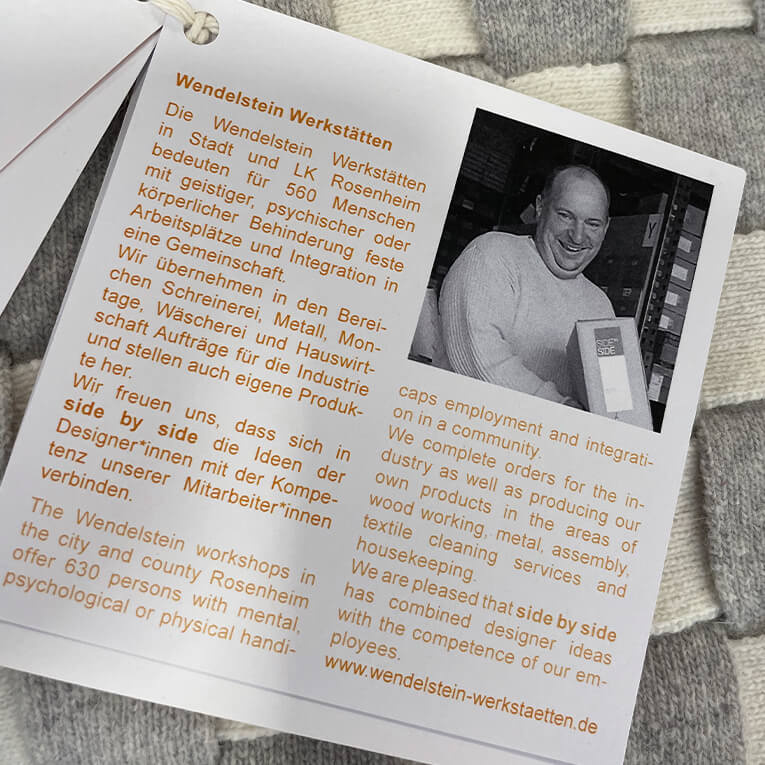 Wendelstein Werkstätten
Die Wendelstein Werkstätten
in Stadt und LK Rosenheim
bedeuten für 560 Menschen
mit geistiger, psychischer oder
körperlicher Behinderung feste
Arbeitsplätze und Integration in
eine Gemeinschaft.
Wir übernehmen in den Berei-
chen Schreinerei, Metall, Mon-
tage, Wäscherei und Hauswirt-
schaft Aufträge für die Industrie
und stellen auch eigene Produk-
te her.
Wir freuen uns, dass sich in
side by side die Ideen der
Designer*innen mit der Kompe-
tenz unserer Mitarbeiter*innen
verbinden.
The Wendelstein workshops in
the city and county Rosenheim
offer 630 persons with mental,
psychological or physical handi-
caps employment and integrati-
on in a community.
We complete orders for the in-
dustry as well as producing our
own products in the areas of
wood working, metal, assembly,
textile cleaning services and
housekeeping.
We are pleased that side by side
has combined designer ideas
with the competence of our em-
ployees.
www.wendelstein-werkstaetten.de
SIDE BY
SIDE